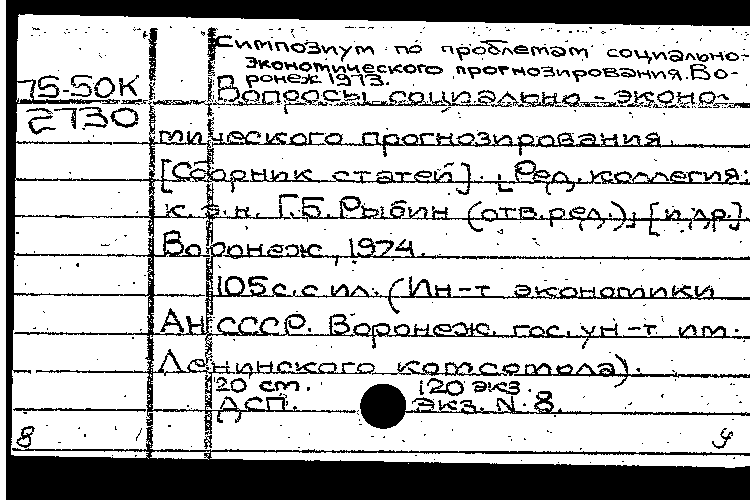 Симпозиум по проблемам социально-
экономического прогнозирования. Во-
ронеж 1973.
75-50К
2730
Вопросы социально-эконо-
мического прогнозирования.
[Сборник статей]. Ред. коллегия:
к.э.н. Г.Б. Рыбин (отв. ред.), [и др.]
Воронеж, 1974.
105 с. с ил. (Ин-т экономики
АН СССР. Воронеж. гос. ун-т им.
Ленинского комсомола).
20 см. 120 экз.
ДСП. Экз. N. 8.
8